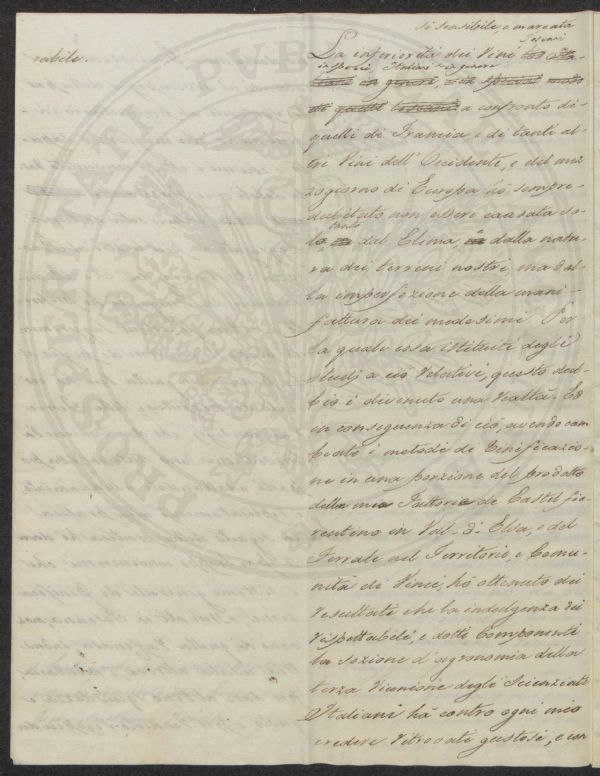 rabile.
sì sensibile, e marcata
La inferiorità dei Vini Toscani
in specie, Italiani in genere
a confronto di
quelli di Francia, e di tanti al-
tri Vini dell'Occidente, e del mez
zogiorno di Europa ho sempre
dubitato non essere causata so-
lo tanto dal Clima, o dalla natu-
ra dei terreni nostri, ma dal-
la imperfezione della mani-
fattura dei medesimi. Per
la quale cosa istituiti degli
studj a ciò relativi, questo dub-
bio è divenuto una realtà. Ed
in conseguenza di ciò, avendo cam
biato i metodi di Vinificazio-
ne in una porzione del prodotto
della mia Fattoria di Castel fio-
rentino in Val-d'Elsa, e del
Ferrale nel Territorio, e Comu-
nità di Vinci, hò ottenuto dei
resultati che la indulgenza dei
rispettabili, e dotti Componenti
la sezione d'agronomia della
terza riunione degli Scienziati
Italiani hà contro ogni mio
credere ritrovati gustosi, e con
PROSPERITATI PVB